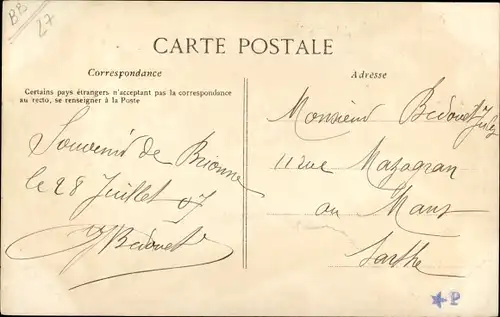 BB
27
CARTE POSTALE
Correspondance
Adresse
Certains pays étrangers n'acceptant pas la correspondance
au recto, se renseigner à la Poste
Souvenir de Brionne
le 28 Juillet 07
Bedouet
Monsieur Bedouet Jules
11 rue Mazagran
au Mans
Sarthe
P